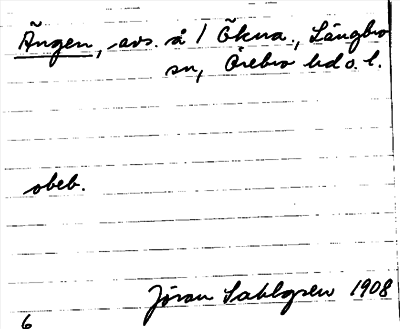 Ängen, avs. å 1 Ökna, Längbro
sn, Örebro hd o. l.
obeb.
Jöran Sahlgren 1908
6